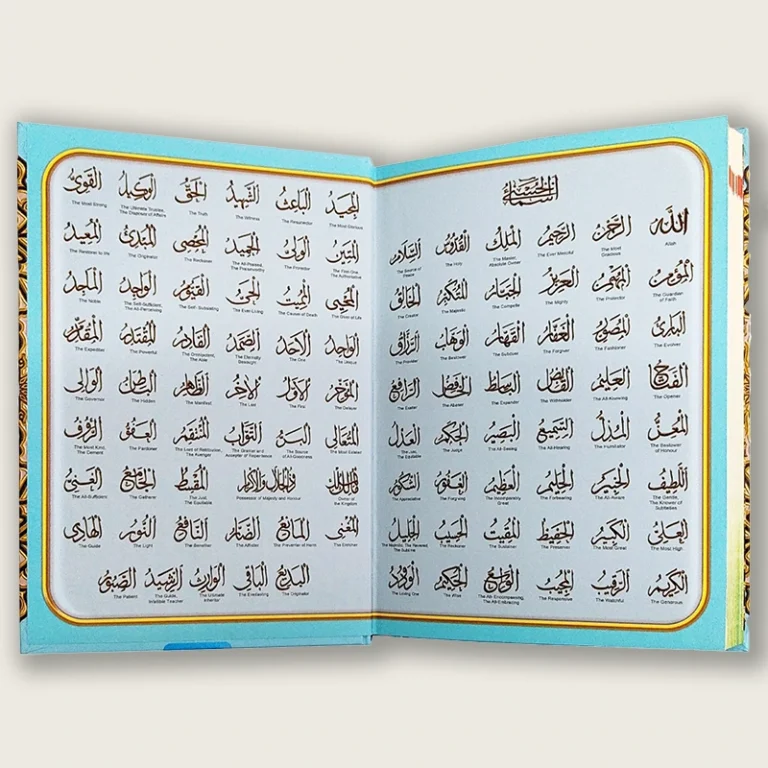 الله الرحمن الرحيم الملك القدوس السلام
The Source of Peace The Holy The Master, Absolute Owner The Ever Merciful The Most Gracious Allah
المؤمن المهيمن العزيز الجبار المتكبر الخالق
The Creator The Majestic The Compeller The Mighty The Protector The Guardian of Faith
البارئ المصور الغفار القهار الوهاب الرزاق
The Provider The Bestower The Subduer The Forgiver The Fashioner The Evolver
الفتاح العليم القابض الباسط الخافض الرافع
The Exalter The Abaser The Expander The Withholder The All-Knowing The Opener
المعز المذل السميع البصير الحكم العدل
The Just, The Equitable The Judge The All-Seeing The All-Hearing The Humiliator The Bestower of Honour
اللطيف الخبير الحليم العظيم الغفور الشكور
The Appreciative The Forgiving The Incomparably Great The Forbearing The All-Aware The Gentle, The Knower of Subtleties
العلى الكبير الحفيظ المقيت الحسيب الجليل
The Majestic, The Revered, The Sublime The Reckoner The Sustainer The Preserver The Most Great The Most High
الكريم الرقيب المجيب الواسع الحكيم الودود
The Loving One The Wise The All-Encompassing, The All-Embracing The Responsive The Watchful The Generous
المجيد الباعث الشهيد الحق الوكيل القوى
The Most Strong The Ultimate Trustee, The Disposer of Affairs The Truth The Witness The Resurrector The Most Glorious
المتين الولى الحميد المحصى المبدئ المعيد
The Restorer to life The Originator The Reckoner The All-Praised, The Praiseworthy The Protector The Firm One, The Authoritative
المحيى المميت الحى القيوم الواجد الماجد
The Noble The Self-Sufficient, The All-Perceiving The Self-Subsisting The Ever-Living The Cause of Death The Giver of Life
الواحد الاحد الصمد القادر المقتدر المقدم
The Expediter The Powerful The Omnipotent, The Able The Eternally Besought The One The Unique
المؤخر الاول الاخر الظاهر الباطن الوالى
The Governor The Hidden The Manifest The Last The First The Delayer
المتعالى البر التواب المنتقم العفو الرؤف
The Most Kind, The Clement The Pardoner The Lord of Retribution, The Avenger The Granter and Accepter of Repentance The Source of All-Goodness The Most Exalted
مالك الملك ذوالجلال والاكرام المقسط الجامع الغنى
The All-Sufficient The Gatherer The Just, The Equitable Possessor of Majesty and Honour Owner of the Kingdom
المغنى المانع الضار النافع النور الهادى
The Guide The Light The Benefiter The Afflictor The Preventer of Harm The Enricher
البديع الباقى الوارث الرشيد الصبور
The Patient The Guide, Infallible Teacher The Ultimate Inheritor The Everlasting The Originator